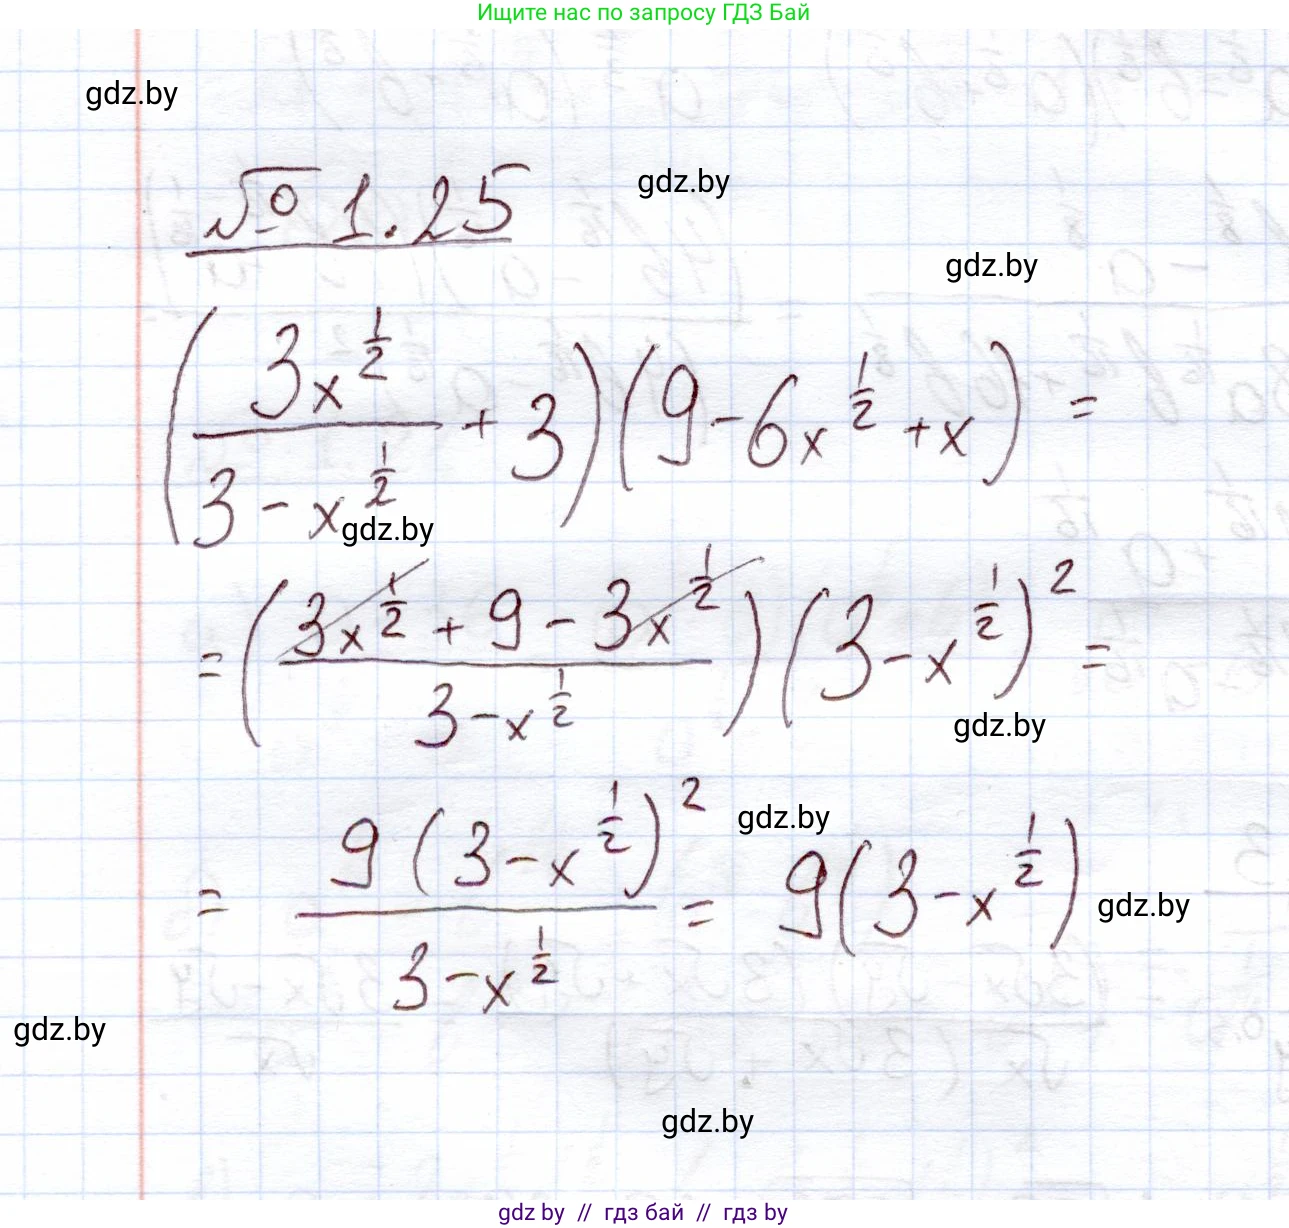 Ищите нас по запросу ГДЗ Бай
gdz.by
№ 1.25
gdz.by
gdz.by
(3x^{1/2} / (3 - x^{1/2}) + 3)(9 - 6x^{1/2} + x) =
gdz.by
= ((3x^{1/2} + 9 - 3x^{1/2}) / (3 - x^{1/2}))(3 - x^{1/2})^2 =
gdz.by
gdz.by
= 9(3 - x^{1/2})^2 / (3 - x^{1/2}) = 9(3 - x^{1/2})
gdz.by
gdz.by
gdz.by
gdz by // гдз бай // гдз by